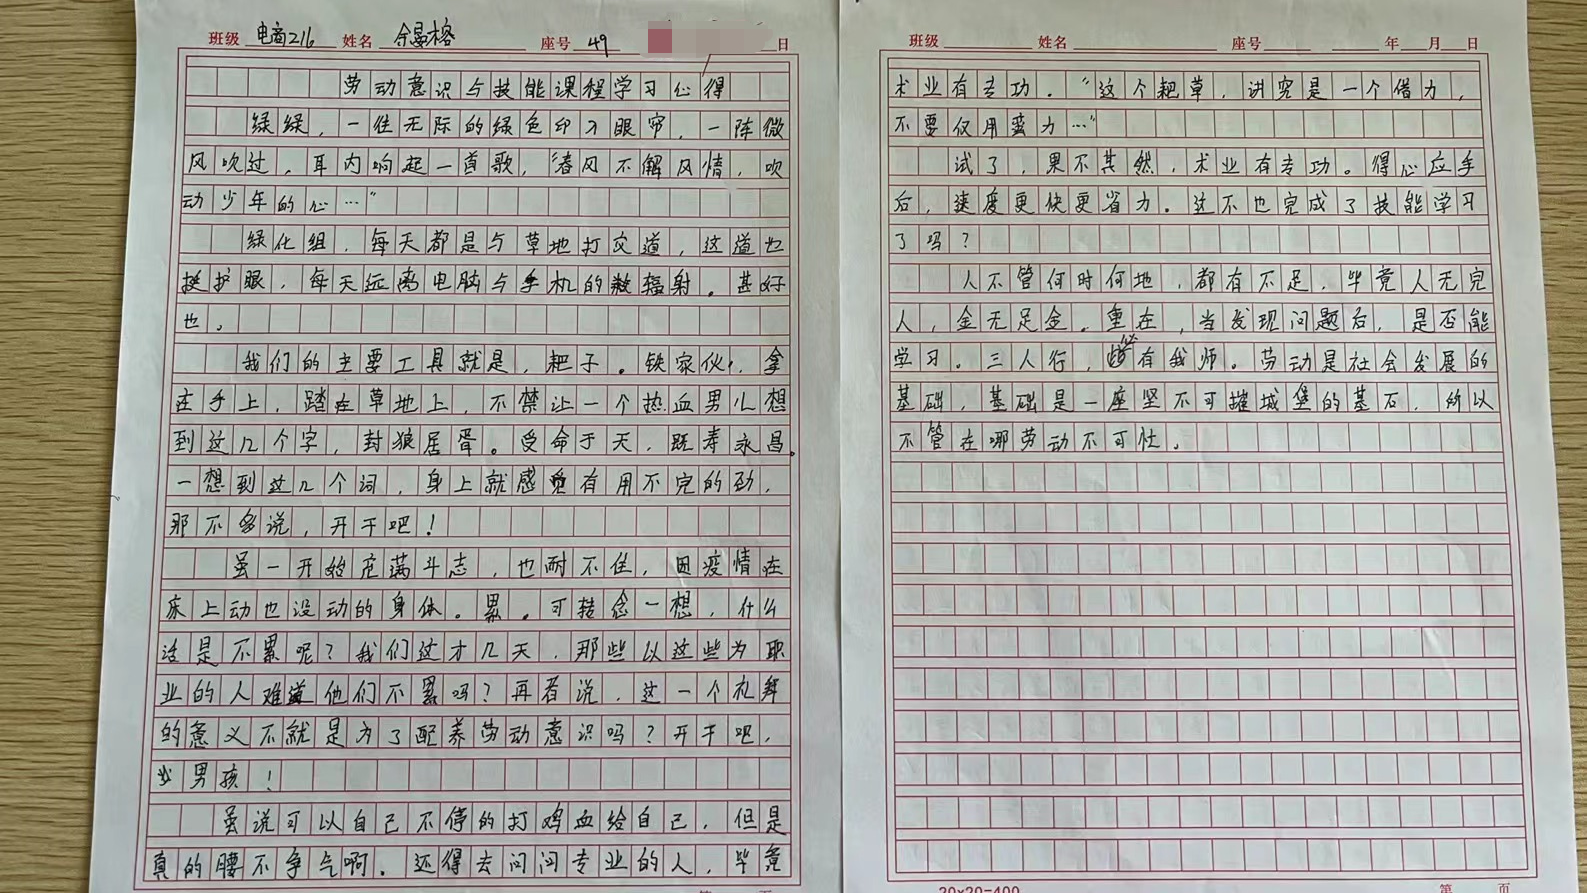 班级 电商216 姓名 余晏榕 座号 49 日
劳动意识与技能课程学习心得
绿绿，一住无际的绿色印入眼帘，一阵微
风吹过，耳内响起一首歌，“春风不解风情，吹
动少年的心…”
绿化组，每天都是与草地打交道，这道也
挺护眼，每天远离电脑与手机的散辐射。甚好
也。
我们的主要工具就是，耙子。铁家伙，拿
在手上，踏在草地上，不禁让一个热血男儿想
到这几个字，封狼居胥。受命于天，既寿永昌。
一想到这几个词，身上就感觉有用不完的劲，
那不多说，开干吧！
虽一开始充满斗志，也耐不住，因疫情在
床上动也没动的身体。累。可转念一想，什么
活是不累呢？我们这才几天，那些以这些为职
业的人难道他们不累吗？再者说，这一个礼拜
的意义不就是为了配养劳动意识吗？开干吧，
少男孩！
虽说可以自己不停的打鸡血给自己，但是
真的腰不争气啊。还得去问问专业的人，毕竟
班级 姓名 座号 年 月 日
术业有专功。“这个耙草，讲究是一个借力，
不要仅用蛮力…”
试了，果不其然，术业有专功。得心应手
后，速度更快更省力。这不也完成了技能学习
了吗？
人不管何时何地，都有不足，毕竟人无完
人，金无足金。重在，当发现问题后，是否能
学习。三人行，必有我师。劳动是社会发展的
基础，基础是一座坚不可摧城堡的基石，所以
不管在哪劳动不可少。
20×20=400 第 页